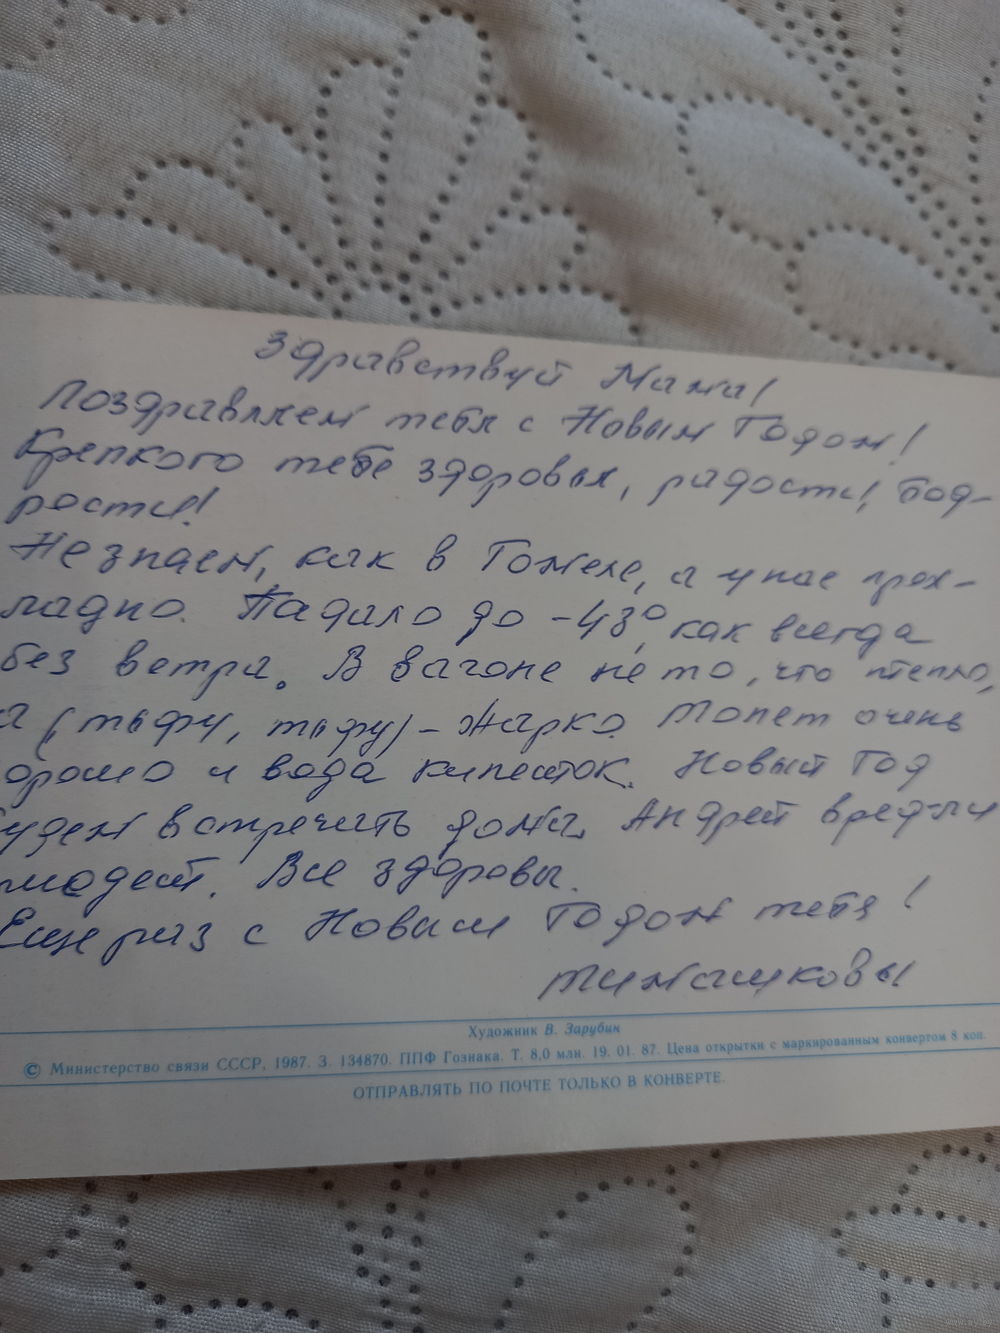 Здравствуй Мама!
Поздравляем тебя с Новым Годом!
Крепкого тебе здоровья, радости, бод-
рости!
Не знаем, как в Гомеле, а у нас прох-
ладно. Падало до -43°, как всегда
без ветра. В вагоне не то, что тепло,
а (тьфу, тьфу) - жарко. Топят очень
и вода кипяток. Новый Год
удем встречать дома. Андрей вряд-ли
. Все здоровы.
Еще раз с Новым Годом тебя!
Тимашковы
Художник В. Зарубин
© Министерство связи СССР, 1987. З. 134870. ППФ Гознака. Т. 8,0 млн. 19. 01. 87. Цена открытки с маркированным конвертом 8 коп.
ОТПРАВЛЯТЬ ПО ПОЧТЕ ТОЛЬКО В КОНВЕРТЕ.